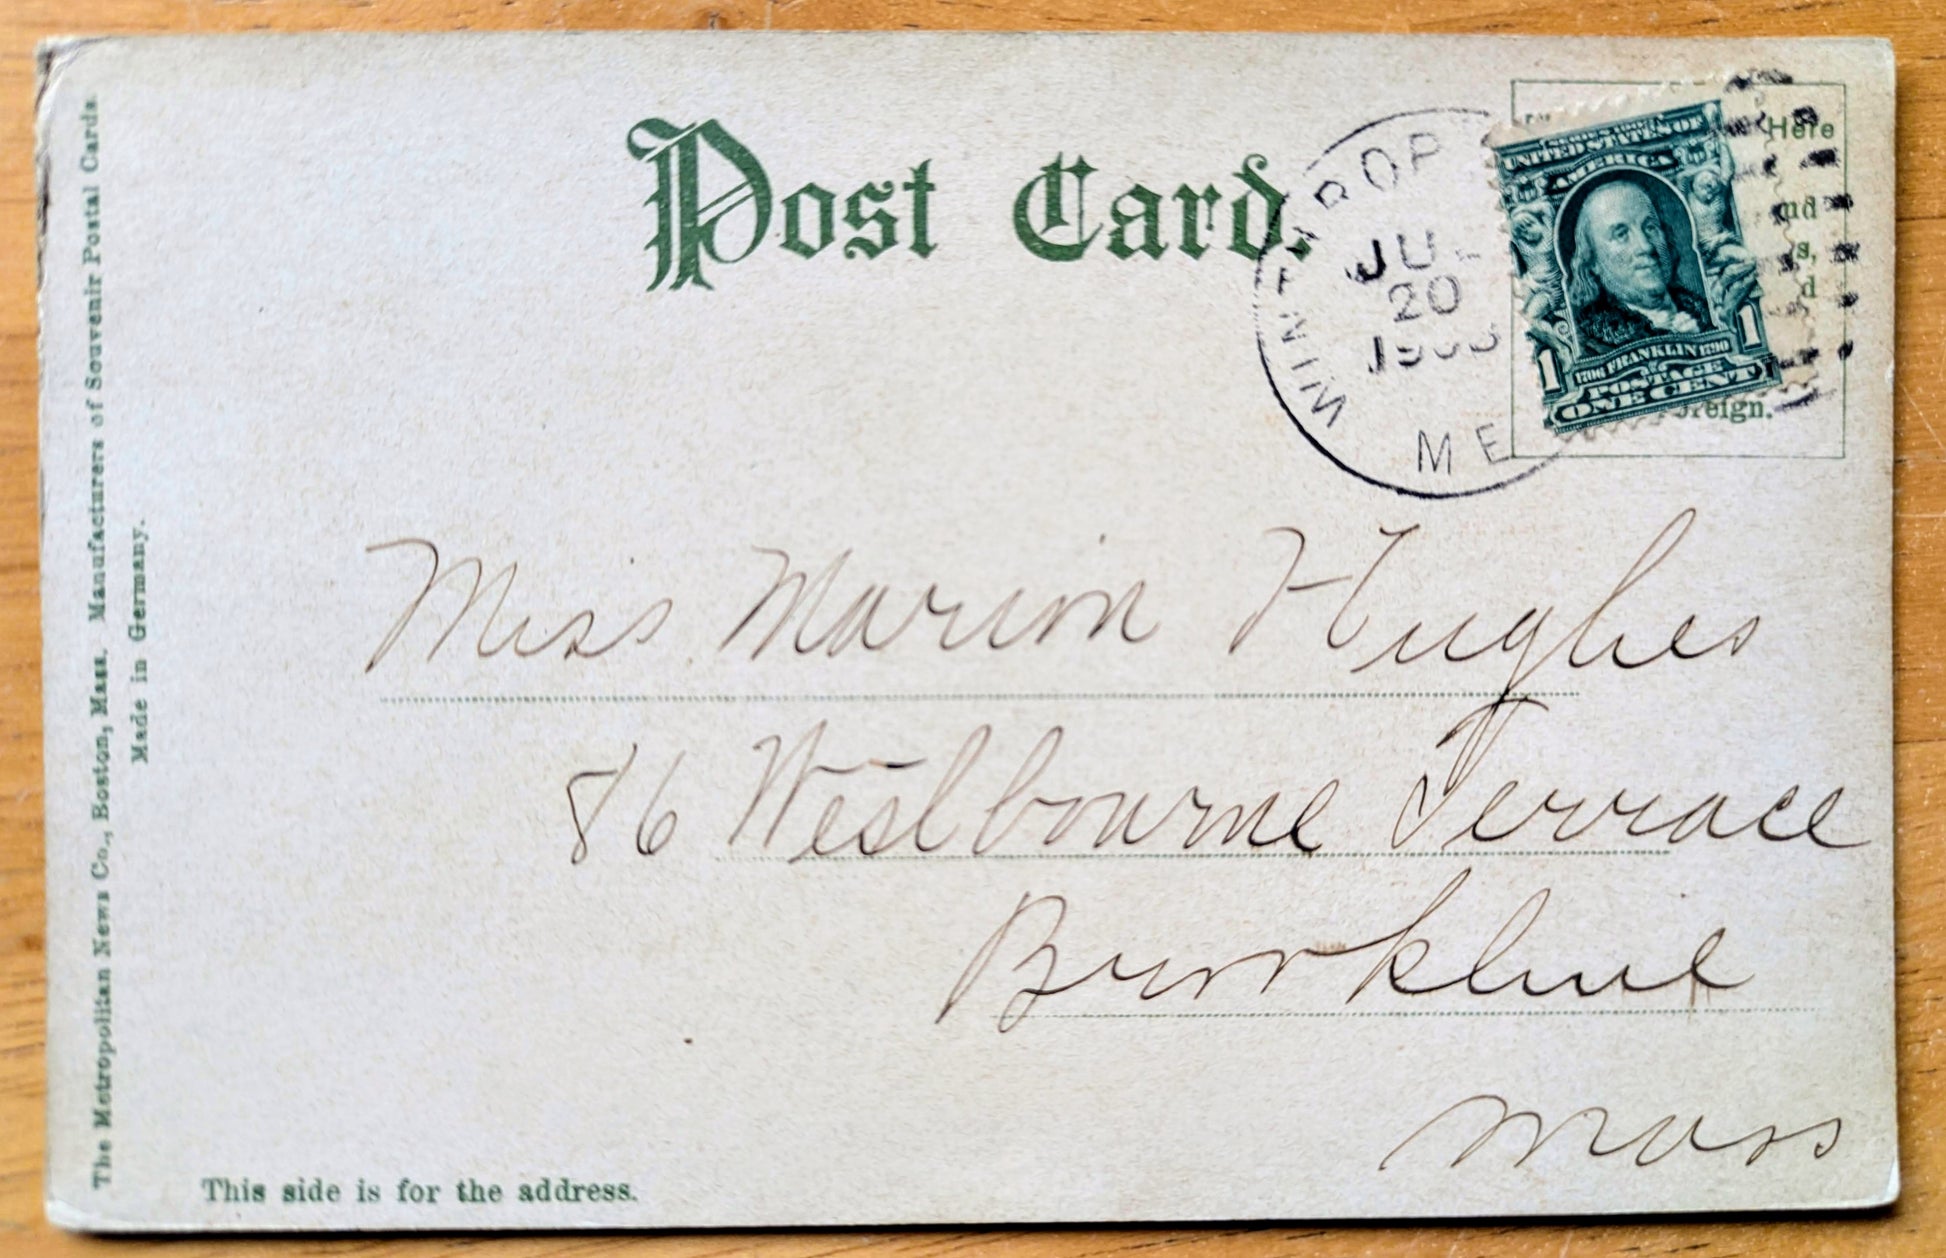 Post Card.
Here
oreign.
WINTHROP
JUL
20
ME
SERIES 1902
UNITED STATES OF
AMERICA
1706 FRANKLIN 1790
1 1
POSTAGE
ONE CENT
Miss Marion Hughes
86 Westbourne Terrace
Brookline
Mass
This side is for the address.
The Metropolitan News Co., Boston, Mass. Manufacturers of Souvenir Postal Cards.
Made in Germany.